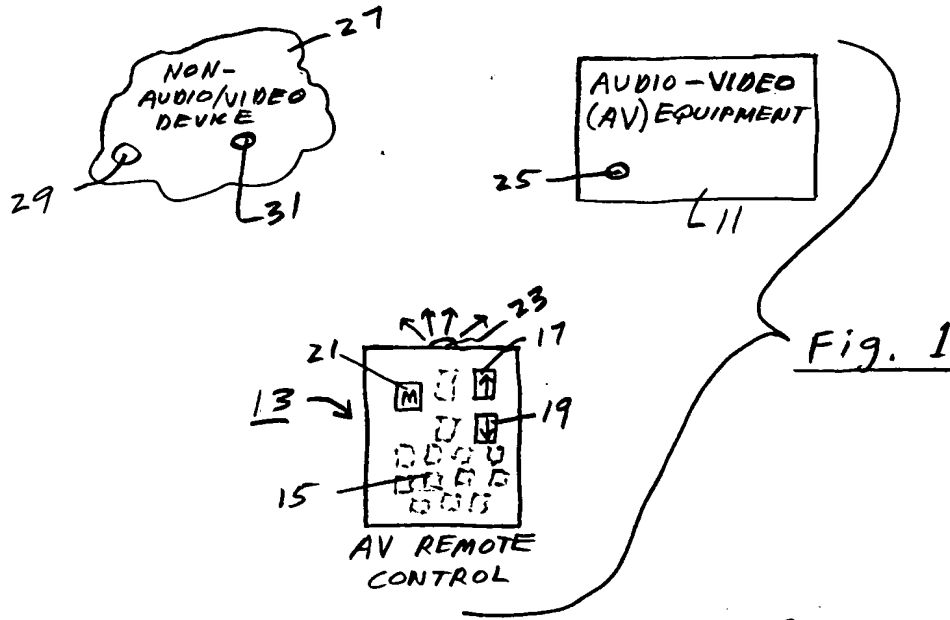 27
NON-
AUDIO/VIDEO
DEVICE
29
31
AUDIO-VIDEO
(AV) EQUIPMENT
25
11
23
17
21
M
13
19
15
AV REMOTE
CONTROL
Fig. 1